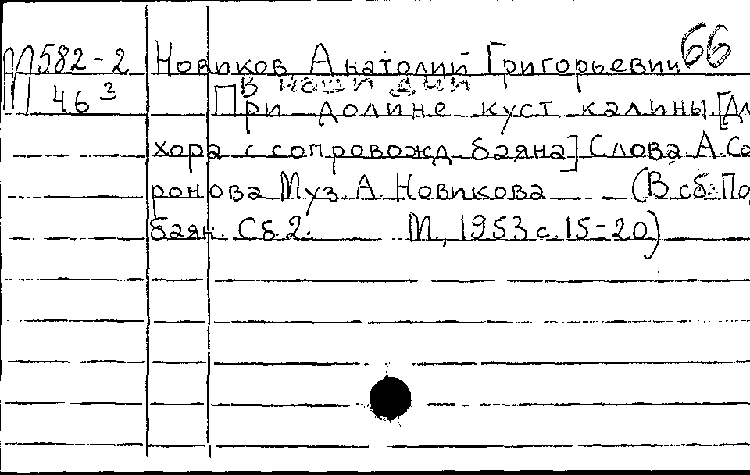 М582-2 Новиков Анатолий Григорьевич 66
46³ В наши дни
При долине куст калины. [Дл
хора с сопровожд. баяна] Слова А. Со
ронова Муз. А. Новикова (В сб: По
баян. Сб. 2. М., 1953 с. 15-20)